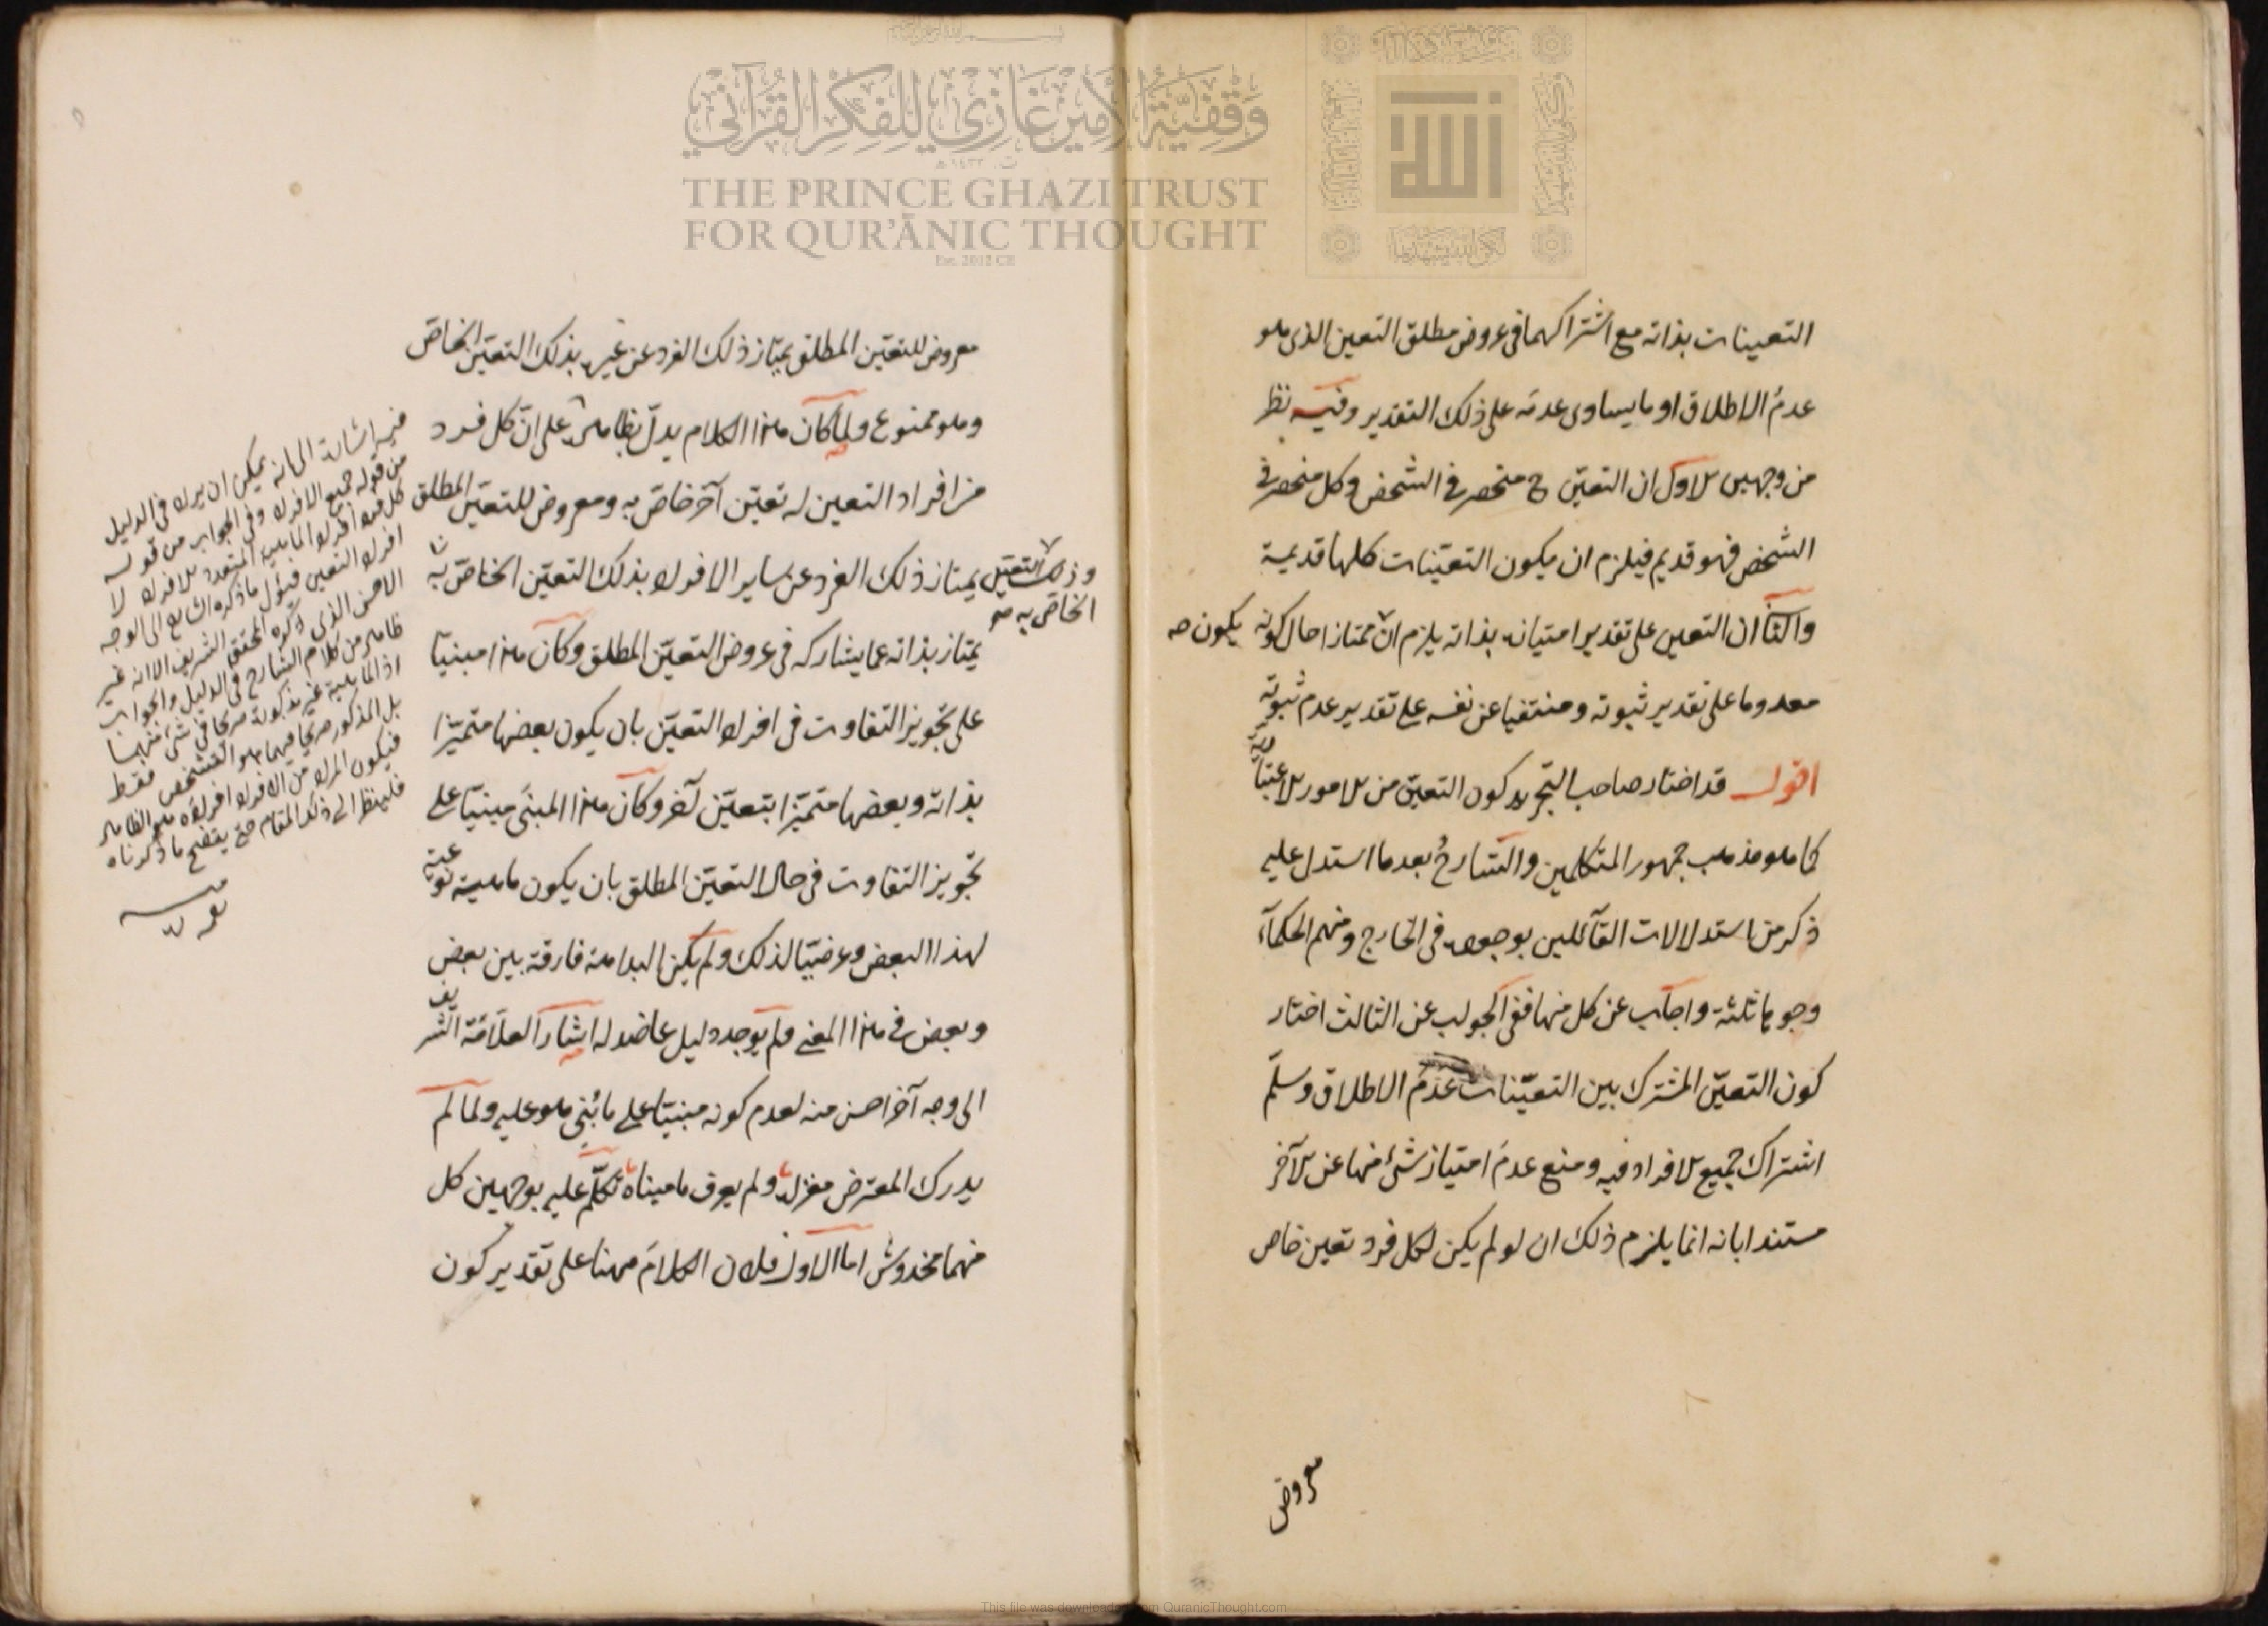 التعينات بذاته مع اشتراكهما فى عروض مطلق التعين الذى هو
عدمُ الاطلاق او ما يساوى عدمَه على ذلك التقدير وفيه نظر
من وجهين الاول ان التعيّن ح منحصر فى الشخص وكل منحصر فى
الشخص فهو قديم فيلزم ان يكون التعيّنات كلها قديمة
والثا ان التعين على تقدير امتيازه بذاته يلزم ان ممتازا حال كونه
يكون صح
معدوما على تقدير ثبوته ومنتفيا عن نفسه على تقدير عدم ثبوته
اقول قد اختار صاحب التجريد كون التعيّن من الامور الاعتبارية
كما هو مذهب جمهور المتكلمين والشارحُ بعد ما استدل عليه
ذكر من استدلالات القآئلين بوجوده فى الخارج ومنهم الحكمآء
وجوها ثلثة واجاب عن كل منها ففى الجواب عن الثالث اختار
كون التعيّن المشترك بين التعيّنات عدمَ الاطلاق وسلّم
اشتراك جميع الافراد فيه ومنع عدمَ امتياز شئ منها عن الآخر
مستندا بانه انما يلزم ذلك ان لو لم يكن لكل فرد تعين خاص
معروض
معروض للتعيّن المطلق يمتاز ذلك الفرد عن غيره بذلك التعيّن الخاصّ
وهو ممنوع ولما كان هذا الكلام يدلّ بظاهره على انّ كل فرد
من افراد التعين له تعيّن آخر خاصّ به ومعروض للتعيّن المطلق
وذلك التعيّن يمتاز ذلك الفرد عن ساير الافراد بذلك التعيّن الخاصّ به
الخاصّ به صح
يمتاز بذاته عما يشاركه فى عروض التعيّن المطلق وكان هذا مبنيّا
على تجويز التفاوت فى افراد التعيّن بان يكون بعضها متميّزا
بذاته وبعضها متميّزا بتعيّن آخر وكان هذا المبنى مبنيّا على
تجويز التفاوت فى حال التعيّن المطلق بان يكون ماهية نوعية
لهذا البعض وعرضيّا لذلك ولم يكن البداهة فارقة بين بعض
وبعض فى هذا المعنى ولم يوجد دليل عاضد له اشار العلّامة الشريف
الى وجه آخر احسن منه لعدم كونه مبنيّا على ما بُنى هو عليه ولما لم
يدرك المعترض مغزاه ولم يعرف ما هيناه تكلّم عليه بوجهين كل
منهما مخدوش اما الاول فلان الكلامَ ههنا على تقدير كون
فيه اشارة الى انه يمكن ان يراد فى الدليل
من قوله جميع الافراد وفى الجواب من قوله
كل فرد افراد الماهية المتعددة الافراد لا
افراد التعين فيؤل ما ذكره الشارح الى الوجه
الاحسن الذى ذكره المحقق الشريف الا انه غير
ظاهر من كلام الشارح فى الدليل والجواب
اذ الماهية غير مذكورة صريحا فى شئ منهما
بل المذكور صريحا فيهما هو التشخص فقط
فيكون المراد من الافراد افراده هو الظاهر
فلينظر الى ذلك المقام حتى يتضح ما ذكرناه
منه
وَقْفِيَّةُ الأَمِير غَازِي لِلْفِكْرِ القُرْآنِي
THE PRINCE GHAZI TRUST
FOR QUR'ĀNIC THOUGHT
Est. 2012 CE
الله
This file was downloaded from QuranicThought.com